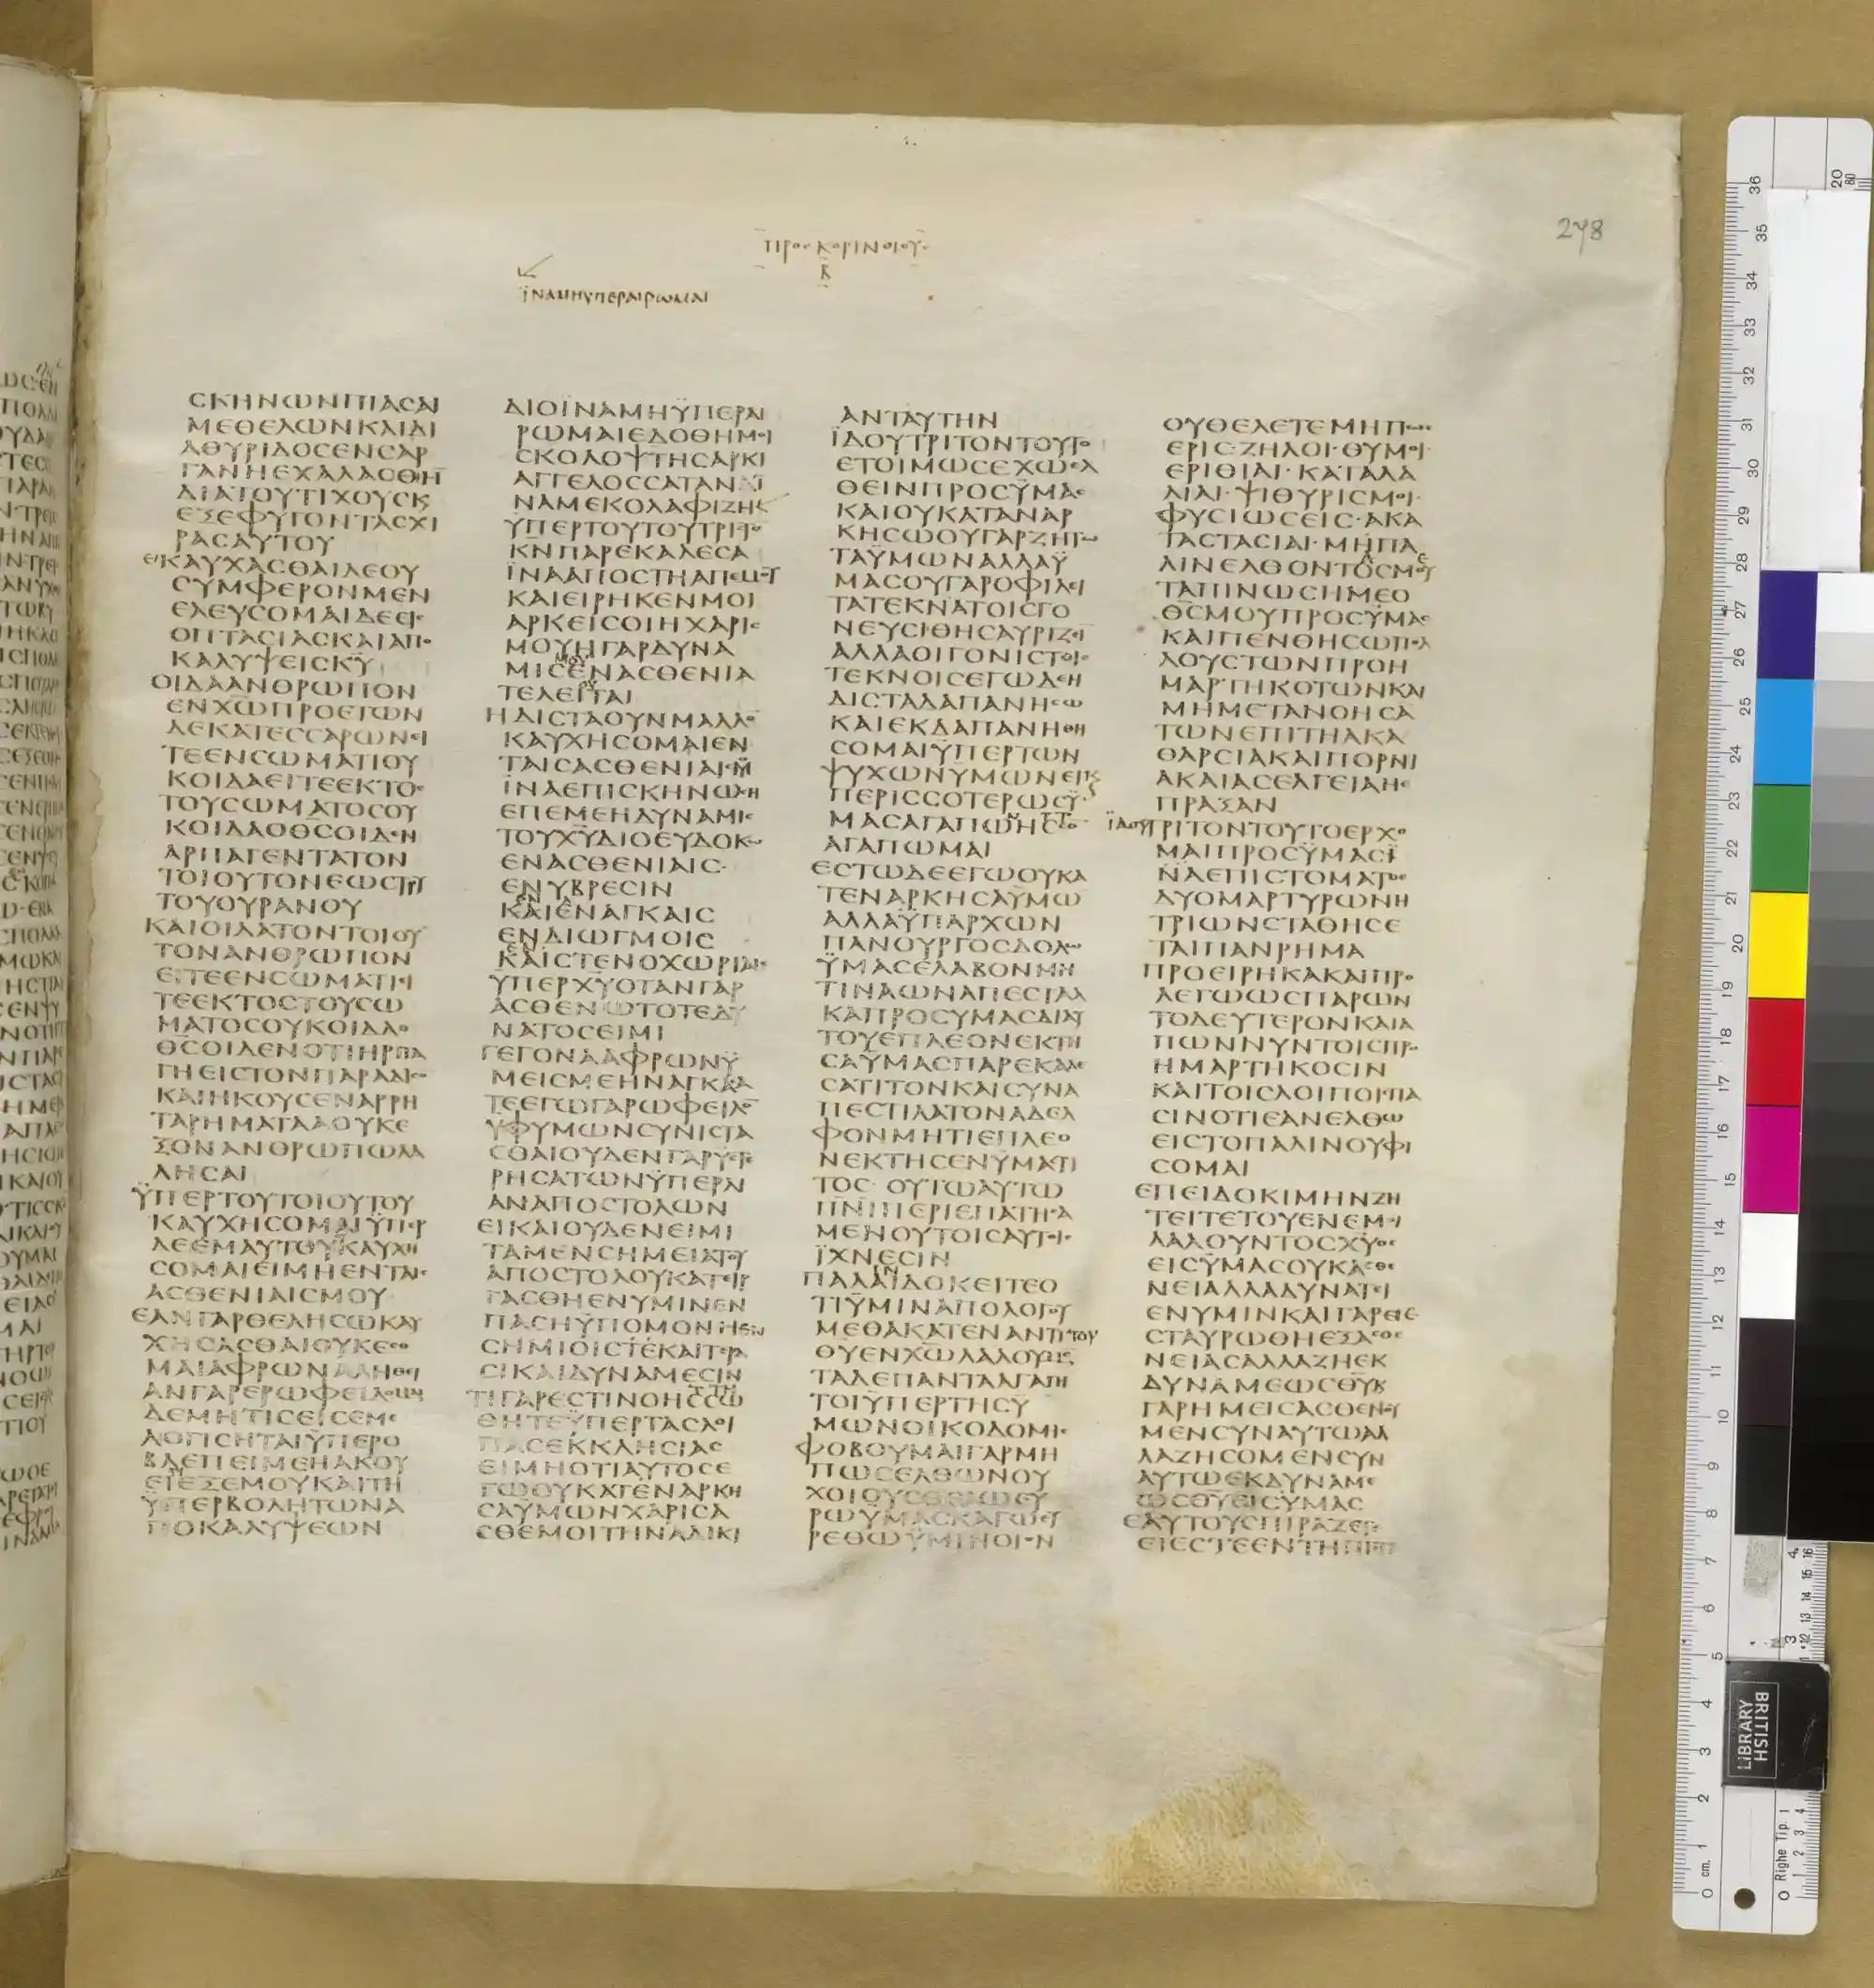 278
ΠΡΟϹ ΚΟΡΙΝΘΙΟΥϹ
Β
ΪΝΑΜΗΥΠΕΡΑΙΡΩΜΑΙ
ϹΚΗΝΩΝΠΙΑϹΑΙ
ΜΕΘΕΛΩΝΚΑΙΔΙ
ΑΘΥΡΙΔΟϹΕΝϹΑΡ
ΓΑΝΗΕΧΑΛΑϹΘΗ
ΔΙΑΤΟΥΤΙΧΟΥϹΚ
ΕΞΕΦΥΓΟΝΤΑϹΧΙ
ΡΑϹΑΥΤΟΥ
ΕΙΚΑΥΧΑϹΘΑΙΔΕΟΥ
ϹΥΜΦΕΡΟΝΜΕΝ
ΕΛΕΥϹΟΜΑΙΔΕΕΙϹ
ΟΠΤΑϹΙΑϹΚΑΙΑΠΟ
ΚΑΛΥΨΕΙϹΚΥ
ΟΙΔΑΑΝΘΡΩΠΟΝ
ΕΝΧΩΠΡΟΕΤΩΝ
ΔΕΚΑΤΕϹϹΑΡΩΝΕΙ
ΤΕΕΝϹΩΜΑΤΙΟΥ
ΚΟΙΔΑΕΙΤΕΕΚΤΟϹ
ΤΟΥϹΩΜΑΤΟϹΟΥ
ΚΟΙΔΑΟΘϹΟΙΔΕΝ
ΑΡΠΑΓΕΝΤΑΤΟΝ
ΤΟΙΟΥΤΟΝΕΩϹΤΡΙ
ΤΟΥΟΥΡΑΝΟΥ
ΚΑΙΟΙΔΑΤΟΝΤΟΙΟΥ
ΤΟΝΑΝΘΡΩΠΟΝ
ΕΙΤΕΕΝϹΩΜΑΤΙΕΙ
ΤΕΕΚΤΟϹΤΟΥϹΩ
ΜΑΤΟϹΟΥΚΟΙΔΑΟ
ΘϹΟΙΔΕΝΟΤΙΗΡΠΑ
ΓΗΕΙϹΤΟΝΠΑΡΑΔΙϹΟ
ΚΑΙΗΚΟΥϹΕΝΑΡΡΗ
ΤΑΡΗΜΑΤΑΑΟΥΚΕ
ΞΟΝΑΝΘΡΩΠΩΛΑ
ΛΗϹΑΙ
ΫΠΕΡΤΟΥΤΟΙΟΥΤΟΥ
ΚΑΥΧΗϹΟΜΑΙΫΠΕΡ
ΔΕΕΜΑΥΤΟΥΟΥΚΑΥΧΗ
ϹΟΜΑΙΕΙΜΗΕΝΤΑΙϹ
ΑϹΘΕΝΙΑΙϹΜΟΥ
ΕΑΝΓΑΡΘΕΛΗϹΩΚΑΥ
ΧΗϹΑϹΘΑΙΟΥΚΕϹΟ
ΜΑΙΑΦΡΩΝΑΛΗΘΕΙ
ΑΝΓΑΡΕΡΩΦΕΙΔΟΜΑΙ
ΔΕΜΗΤΙϹΕΙϹΕΜΕ
ΛΟΓΙϹΗΤΑΙΫΠΕΡΟ
ΒΛΕΠΕΙΜΕΗΑΚΟΥ
ΕΙΕΞΕΜΟΥΚΑΙΤΗ
ΫΠΕΡΒΟΛΗΤΩΝΑ
ΠΟΚΑΛΥΨΕΩΝ
ΔΙΟΪΝΑΜΗΫΠΕΡΑΙ
ΡΩΜΑΙΕΔΟΘΗΜΟΙ
ϹΚΟΛΟΨΤΗϹΑΡΚΙ
ΑΓΓΕΛΟϹϹΑΤΑΝΑΪ
ΝΑΜΕΚΟΛΑΦΙΖΗ
ΥΠΕΡΤΟΥΤΟΥΤΡΙϹΤΟ
ΚΝΠΑΡΕΚΑΛΕϹΑ
ΪΝΑΑΠΟϹΤΗΑΠΕΜΟΥ
ΚΑΙΕΙΡΗΚΕΝΜΟΙ
ΑΡΚΕΙϹΟΙΗΧΑΡΙϹ
ΜΟΥΗΓΑΡΔΥΝΑ
ΜΙϹΜΟΥΕΝΑϹΘΕΝΙΑ
ΤΕΛΕΙΤΑΙ
ΗΔΙϹΤΑΟΥΝΜΑΛΛΟ
ΚΑΥΧΗϹΟΜΑΙΕΝ
ΤΑΙϹΑϹΘΕΝΙΑΙϹΜΟΥ
ΪΝΑΕΠΙϹΚΗΝΩϹΗ
ΕΠΕΜΕΗΔΥΝΑΜΙϹ
ΤΟΥΧΥΔΙΟΕΥΔΟΚΩ
ΕΝΑϹΘΕΝΙΑΙϹ
ΕΝΥΒΡΕϹΙΝ
ΚΑΙΕΝΑΓΚΑΙϹ
ΕΝΔΙΩΓΜΟΙϹ
ΚΑΙϹΤΕΝΟΧΩΡΙΑΙϹ
ΥΠΕΡΧΥΟΤΑΝΓΑΡ
ΑϹΘΕΝΩΤΟΤΕΔΥ
ΝΑΤΟϹΕΙΜΙ
ΓΕΓΟΝΑΑΦΡΩΝΫ
ΜΕΙϹΜΕΗΝΑΓΚΑϹΑ
ΤΕΕΓΩΓΑΡΩΦΕΙΛΟ
ΥΦΥΜΩΝϹΥΝΙϹΤΑ
ϹΘΑΙΟΥΔΕΝΓΑΡΥϹΤΕ
ΡΗϹΑΤΩΝΫΠΕΡΛΙ
ΑΝΑΠΟϹΤΟΛΩΝ
ΕΙΚΑΙΟΥΔΕΝΕΙΜΙ
ΤΑΜΕΝϹΗΜΕΙΑΤΟΥ
ΑΠΟϹΤΟΛΟΥΚΑΤΕΙΡ
ΓΑϹΘΗΕΝΥΜΙΝΕΝ
ΠΑϹΗΫΠΟΜΟΝΗΕΝ
ϹΗΜΙΟΙϹΤΕΚΑΙΤΕΡΑ
ϹΙΚΑΙΔΥΝΑΜΕϹΙΝ
ΤΙΓΑΡΕϹΤΙΝΟΗϹϹΩ
ΘΗΤΕΫΠΕΡΤΑϹΛΟΙ
ΠΑϹΕΚΚΛΗϹΙΑϹ
ΕΙΜΗΟΤΙΑΥΤΟϹΕ
ΓΩΟΥΚΑΤΕΝΑΡΚΗ
ϹΑΥΜΩΝΧΑΡΙϹΑ
ϹΘΕΜΟΙΤΗΝΑΔΙΚΙ
ΑΝΤΑΥΤΗΝ
ΪΔΟΥΤΡΙΤΟΝΤΟΥΤΟ
ΕΤΟΙΜΩϹΕΧΩΕΛ
ΘΕΙΝΠΡΟϹΫΜΑϹ
ΚΑΙΟΥΚΑΤΑΝΑΡ
ΚΗϹΩΟΥΓΑΡΖΗΤΩ
ΤΑΫΜΩΝΑΛΛΑΫ
ΜΑϹΟΥΓΑΡΟΦΙΛΕΙ
ΤΑΤΕΚΝΑΤΟΙϹΓΟ
ΝΕΥϹΙΘΗϹΑΥΡΙΖΕΙ
ΑΛΛΑΟΙΓΟΝΙϹΤΟΙϹ
ΤΕΚΝΟΙϹΕΓΩΔΕΗ
ΔΙϹΤΑΔΑΠΑΝΗϹΩ
ΚΑΙΕΚΔΑΠΑΝΗΘΗ
ϹΟΜΑΙΫΠΕΡΤΩΝ
ΨΥΧΩΝΥΜΩΝΕΙ
ΠΕΡΙϹϹΟΤΕΡΩϹΫ
ΜΑϹΑΓΑΠΩΗϹϹΟ
ΑΓΑΠΩΜΑΙ
ΕϹΤΩΔΕΕΓΩΟΥΚΑ
ΤΕΝΑΡΚΗϹΑΥΜΩ
ΑΛΛΑΫΠΑΡΧΩΝ
ΠΑΝΟΥΡΓΟϹΔΟΛΩ
ΫΜΑϹΕΛΑΒΟΝΜΗ
ΤΙΝΑΩΝΑΠΕϹΤΑΛ
ΚΑΠΡΟϹΥΜΑϹΔΙΑΥ
ΤΟΥΕΠΛΕΟΝΕΚΤΗ
ϹΑΫΜΑϹΠΑΡΕΚΑΛΕ
ϹΑΤΙΤΟΝΚΑΙϹΥΝΑ
ΠΕϹΤΙΛΑΤΟΝΑΔΕΛ
ΦΟΝΜΗΤΙΕΠΛΕΟ
ΝΕΚΤΗϹΕΝΥΜΑΤΙ
ΤΟϹ ΟΥΤΩΑΥΤΩ
ΠΝΙΠΕΡΙΕΠΑΤΗϹΑ
ΜΕΝΟΥΤΟΙϹΑΥΤΟΙϹ
ΪΧΝΕϹΙΝ
ΠΑΛΑΙΔΟΚΕΙΤΕΟ
ΤΙΫΜΙΝΑΠΟΛΟΓΟΥ
ΜΕΘΑΚΑΤΕΝΑΝΤΙΤΟΥ
ΘΥΕΝΧΩΛΑΛΟΥΜΕ
ΤΑΔΕΠΑΝΤΑΑΓΑΠΗ
ΤΟΙΫΠΕΡΤΗϹΥ
ΜΩΝΟΙΚΟΔΟΜΗϹ
ΦΟΒΟΥΜΑΙΓΑΡΜΗ
ΠΩϹΕΛΘΩΝΟΥ
ΧΟΙΟΥϹΘΕΛΩΕΥ
ΡΩΫΜΑϹΚΑΓΩΕΥ
ΡΕΘΩΫΜΙΝΟΙΟΝ
ΟΥΘΕΛΕΤΕΜΗΠΩϹ
ΕΡΙϹ·ΖΗΛΟΙ·ΘΥΜΟΙ·
ΕΡΙΘΙΑΙ·ΚΑΤΑΛΑ
ΛΙΑΙ·ΨΙΘΥΡΙϹΜΟΙ·
ΦΥϹΙΩϹΕΙϹ·ΑΚΑ
ΤΑϹΤΑϹΙΑΙ·ΜΗΠΑ
ΛΙΝΕΛΘΟΝΤΟϹΜΟΥ
ΤΑΠΙΝΩϹΗΜΕΟ
ΘϹΜΟΥΠΡΟϹΫΜΑϹ
ΚΑΙΠΕΝΘΗϹΩΠΟΛ
ΛΟΥϹΤΩΝΠΡΟΗ
ΜΑΡΤΗΚΟΤΩΝΚΑΙ
ΜΗΜΕΤΑΝΟΗϹΑ
ΤΩΝΕΠΙΤΗΑΚΑ
ΘΑΡϹΙΑΚΑΙΠΟΡΝΙ
ΑΚΑΙΑϹΕΛΓΕΙΑΗϹ
ΠΡΑΞΑΝ
ΪΔΟΥΤΡΙΤΟΝΤΟΥΤΟΕΡΧΟ
ΜΑΙΠΡΟϹΫΜΑϹΪ
ΝΑΕΠΙϹΤΟΜΑΤΟϹ
ΔΥΟΜΑΡΤΥΡΩΝΗ
ΤΡΙΩΝϹΤΑΘΗϹΕ
ΤΑΙΠΑΝΡΗΜΑ
ΠΡΟΕΙΡΗΚΑΚΑΙΠΡΟ
ΛΕΓΩΩϹΠΑΡΩΝ
ΤΟΔΕΥΤΕΡΟΝΚΑΙΑ
ΠΩΝΝΥΝΤΟΙϹΠΡΟ
ΗΜΑΡΤΗΚΟϹΙΝ
ΚΑΙΤΟΙϹΛΟΙΠΟΙϹΠΑ
ϹΙΝΟΤΙΕΑΝΕΛΘΩ
ΕΙϹΤΟΠΑΛΙΝΟΥΦΙ
ϹΟΜΑΙ
ΕΠΕΙΔΟΚΙΜΗΝΖΗ
ΤΕΙΤΕΤΟΥΕΝΕΜΟΙ
ΛΑΛΟΥΝΤΟϹΧΥΟϹ
ΕΙϹΫΜΑϹΟΥΚΑϹΘΕ
ΝΕΙΑΛΛΑΔΥΝΑΤΕΙ
ΕΝΥΜΙΝΚΑΙΓΑΡΕΙϹ
ϹΤΑΥΡΩΘΗΕΞΑϹΘΕ
ΝΕΙΑϹΑΛΛΑΖΗΕΚ
ΔΥΝΑΜΕΩϹΘΥΚ
ΓΑΡΗΜΕΙϹΑϹΘΕΝΟΥ
ΜΕΝϹΥΝΑΥΤΩΑΛ
ΛΑΖΗϹΟΜΕΝϹΥΝ
ΑΥΤΩΕΚΔΥΝΑΜΕ
ΩϹΘΥΕΙϹΥΜΑϹ
ΕΑΥΤΟΥϹΠΙΡΑΖΕΤΕ
ΕΙΕϹΤΕΕΝΤΗΠΙϹΤΙ
BRITISH
LIBRARY